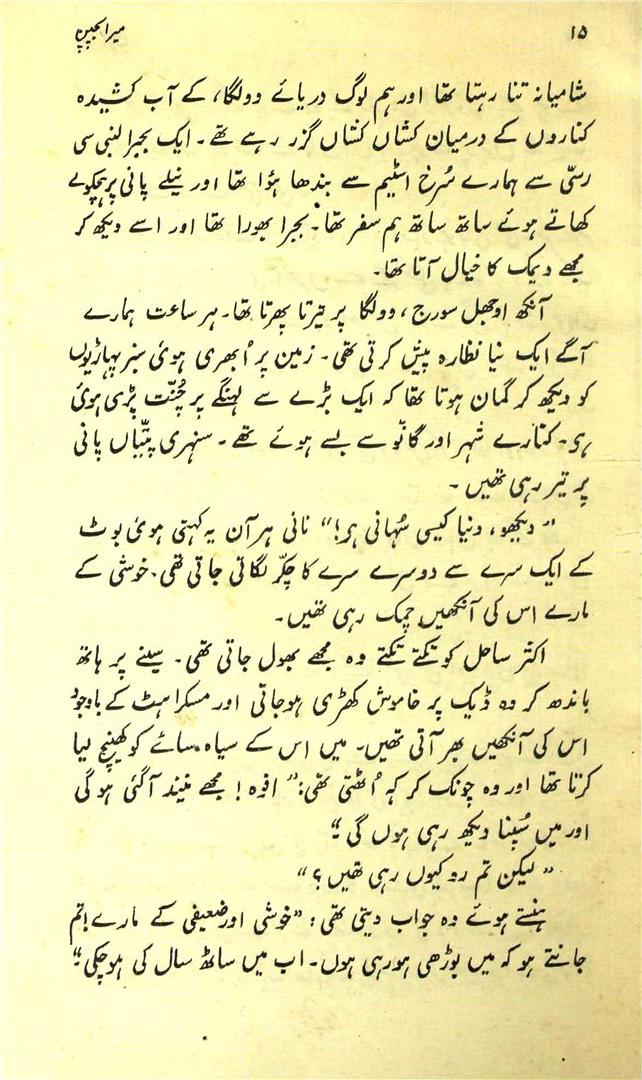 ۱۵
میرا بچپن
شامیانہ تنا رہتا تھا اور ہم لوگ دریائے وولگا، کے آب کشیدہ
کناروں کے درمیان کشاں کشاں گزر رہے تھے۔ ایک بجرا لنبی سی
رسّی سے ہمارے سُرخ اسٹیم سے بندھا ہؤا تھا اور نیلے پانی پر ہچکولے
کھاتے ہوئے ساتھ ساتھ ہم سفر تھا۔ بجرا بھورا تھا اور اسے دیکھ کر
مجھے دیمک کا خیال آتا تھا۔
آنکھ اوجھل سورج، وولگا پر تیرتا پھرتا تھا۔ ہر ساعت ہمارے
آگے ایک نیا نظارہ پیش کرتی تھی۔ زمین پر اُبھری ہوئی سبز پہاڑیوں
کو دیکھ کر گمان ہوتا تھا کہ ایک بڑے سے لہنگے پر چُنّت پڑی ہوئی
ہے۔ کنارے شہر اور گانو سے بسے ہوئے تھے۔ سنہری پتّیاں پانی
پر تیر رہی تھیں۔
”دیکھو، دنیا کیسی سُہانی ہے!“ نانی ہر آن یہ کہتی ہوئی بوٹ
کے ایک سرے سے دوسرے سرے کا چکّر لگاتی جاتی تھی۔ خوشی کے
مارے اس کی آنکھیں چمک رہی تھیں۔
اکثر ساحل کو تکتے تکتے وہ مجھے بھول جاتی تھی۔ سینے پر ہاتھ
باندھ کر وہ ڈیک پر خاموش کھڑی ہوجاتی اور مسکراہٹ کے باوجود
اس کی آنکھیں بھر آتی تھیں۔ میں اس کے سیاہ سائے کو کھینچ لیا
کرتا تھا اور وہ چونک کر کہ اُٹھتی تھی: ”افوہ! مجھے نیند آگئی ہوگی
اور میں سُپنا دیکھ رہی ہوں گی“
”لیکن تم رو کیوں رہی تھیں؟“
ہنستے ہوئے وہ جواب دیتی تھی: ”خوشی اور ضعیفی کے مارے! تم
جانتے ہو کہ میں بوڑھی ہورہی ہوں۔ اب میں ساٹھ سال کی ہوچکی“